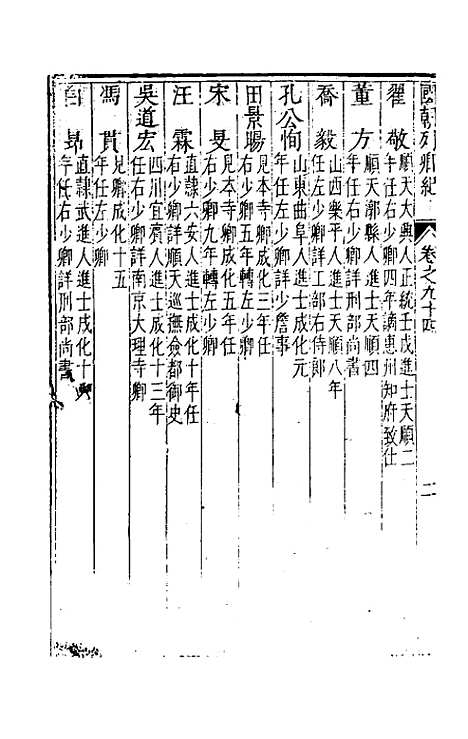 國朝列卿紀 卷之九十四 二
翟敬 順天大興人正統壬戌進士天順二
年任右少卿四年謫惠州知府致仕
董方 順天漷縣人進士天順四
年任右少卿詳刑部尚書
喬毅 山西樂平人進士天順八年
任左少卿詳工部右侍郎
孔公恂 山東曲阜人進士成化元
年任左少卿詳少詹事
田景暘 見本寺卿成化三年任
右少卿五年轉左少卿
宋旻 見本寺卿成化五年任
右少卿九年轉左少卿
汪霖 直隸六安人進士成化十年任
右少卿詳順天巡撫僉都御史
吳道宏 四川宜賓人進士成化十三年
任右少卿詳南京大理寺卿
馮貫 見卿成化十五
年任左少卿
白昻 直隸武進人進士成化十
年任右少卿詳刑部尚書